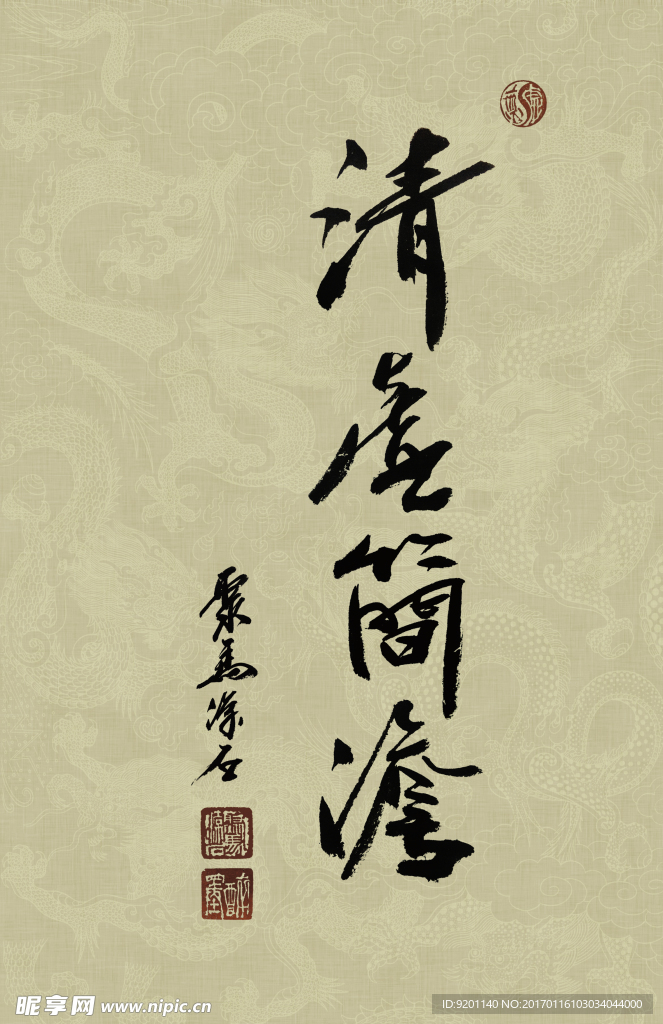 清虚简澹
聚马涤石
昵享网 www.nipic.cn
ID:9201140 NO:20170116103034044000